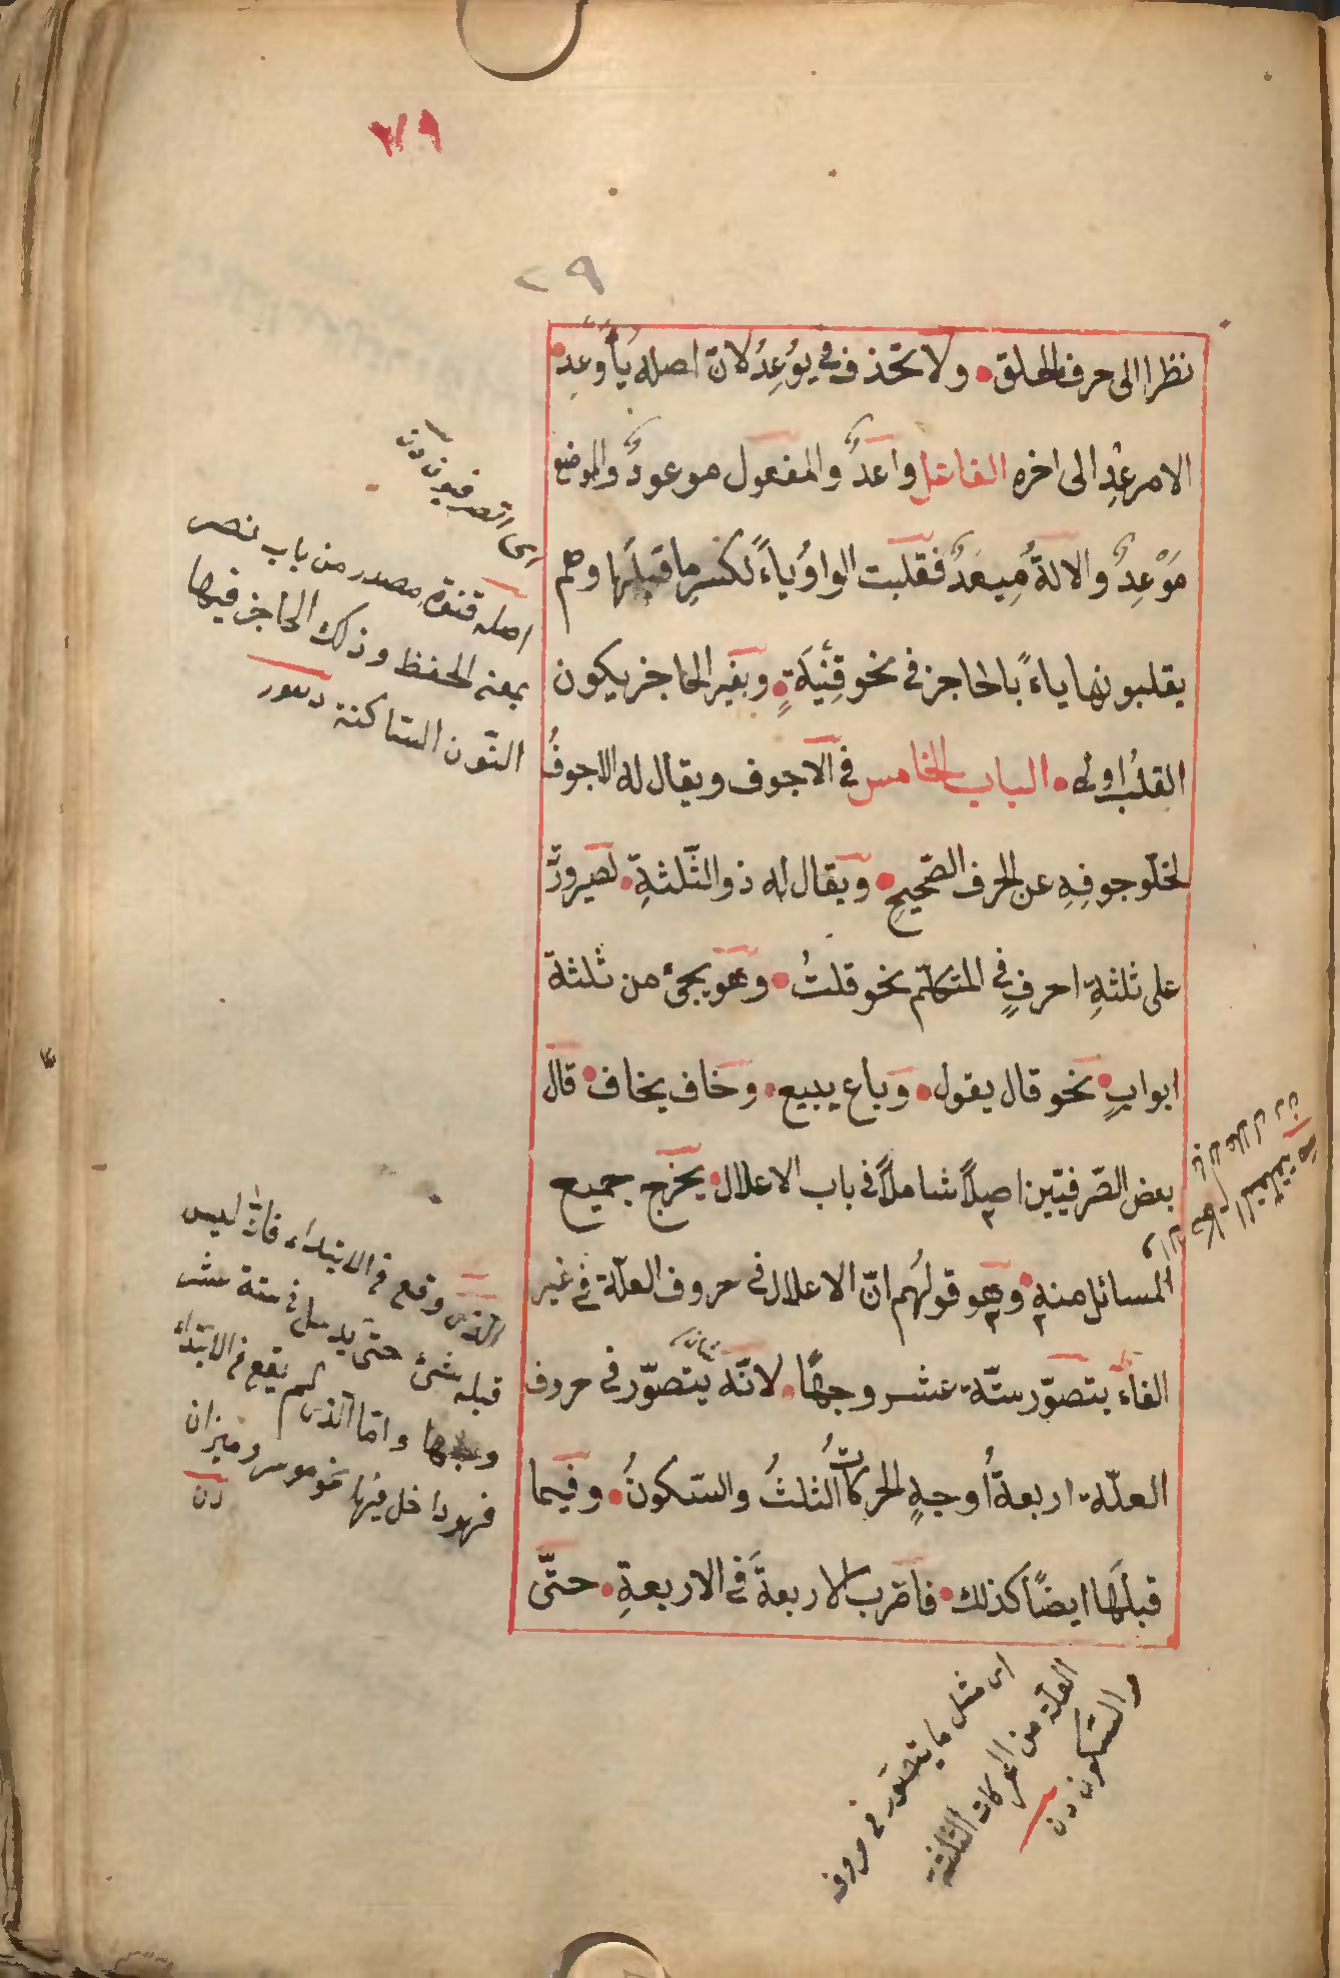 ٧٩
٢٩
نظرا الى حرف الحلق ولا تحذف فى يُوْعِدُ لانّ اصله يُأَوْعِدُ
الامر عِدْ الى اخره الفاعل واعدٌ والمفعول موعودٌ والموضع
مَوْعِدٌ والالةُ مِيعَدٌ فقلبت الواوُ ياءً لكسرِ ما قبلَها وهم
يقلبونها ياءً بالحاجز فى نحو قِنْيَةٍ وبغير الحاجز يكون
القلبُ اولى الباب الخامس فى الاجوف ويقال له الاجوفُ
لخلّو جوفِهِ عن الحرف الصّحيحِ ويقال له ذو الثّلثةِ لصيرورته
على ثلثةِ احرفٍ فى المتكلّم نحو قلتُ وهو يجئ من ثلثة
ابوابٍ نحو قال يقول وباع يبيع وخاف يخاف قال
بعض الصّرفيّين اصلاً شاملاً فى باب الاعلال يخرج جميع
المسائل منه وهو قولُهم انّ الاعلال فى حروف العلّة فى غير
الفاء يتصوّر ستّة عشر وجهًا لانّه يتصوّر فى حروف
العلّة اربعةُ أوجهٍ الحركاتُ الثلثُ والسّكونُ وفيما
قبلَها ايضًا كذلك فاضرب الاربعةَ فى الاربعةِ حتّى
اى الصرفيون
اصله قنوة مصدر من باب نصر
بمعنى الحفظ وذلك الحاجز فيها
النّون السّاكنة
الذى وقع فى الابتداء فانّ ليس
قبله شئ حتى يدخل فى ستة عشر
وجها وامّا الذى لم يقع فى الابتداء
فهو داخل فيها نحو موسر وميزان
اى مثل ما يتصور فى حروف
العلّة من الحركات الثلثة
والسّكون